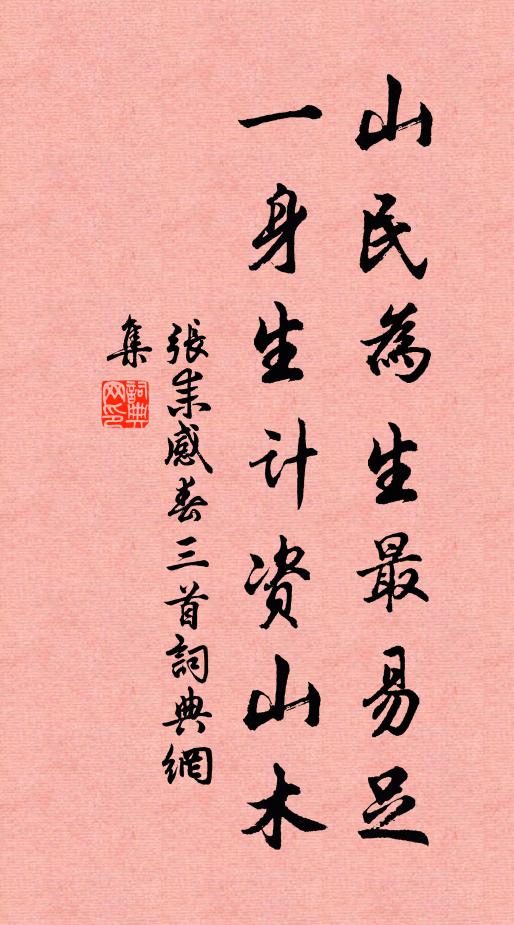 山民為生最易足
一身生计资山木
張耒感春三首詞典網
集
詞典網印